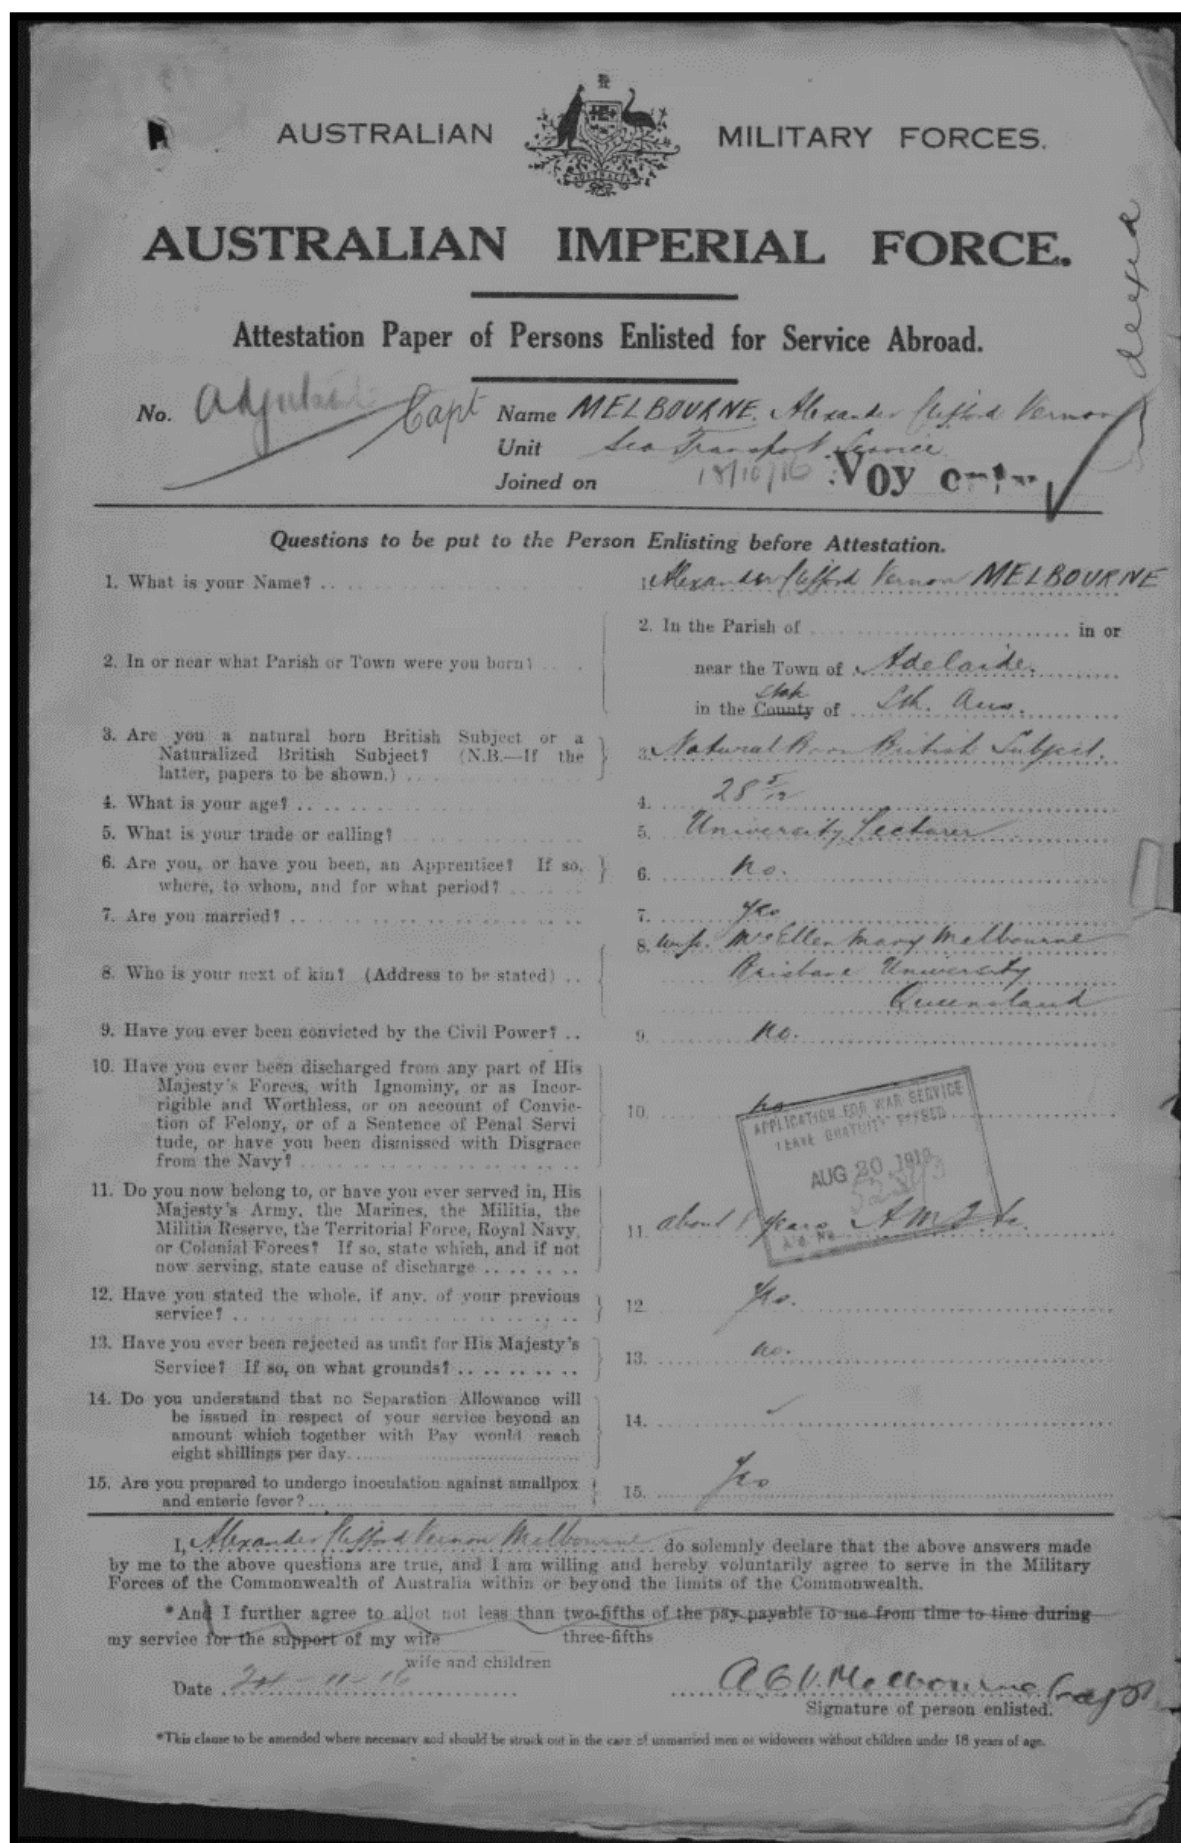 AUSTRALIAN MILITARY FORCES.
AUSTRALIA
AUSTRALIAN IMPERIAL FORCE.
Attestation Paper of Persons Enlisted for Service Abroad.
No. Adjutant Capt Name MELBOURNE. Alexander Clifford Vernon
Unit Sea Transport Service
Joined on 18/10/16 Voy only
Questions to be put to the Person Enlisting before Attestation.
1. What is your Name? .. 1. Alexander Clifford Vernon MELBOURNE
2. In or near what Parish or Town were you born? .. 2. In the Parish of in or
near the Town of Adelaide.
in the County State of Sth. Aus.
3. Are you a natural born British Subject or a
Naturalized British Subject? (N.B.—If the
latter, papers to be shown.) 3. Natural Born British Subject.
4. What is your age? .. 4. 28 5/12
5. What is your trade or calling? 5. University Lecturer
6. Are you, or have you been, an Apprentice? If so,
where, to whom, and for what period? 6. No.
7. Are you married? .. 7. Yes
8. Who is your next of kin? (Address to be stated) .. 8. wife. Mrs Ellen Mary Melbourne
Brisbane University
Queensland
9. Have you ever been convicted by the Civil Power? .. 9. No.
10. Have you ever been discharged from any part of His
Majesty's Forces, with Ignominy, or as Incor-
rigible and Worthless, or on account of Convic-
tion of Felony, or of a Sentence of Penal Servi
tude, or have you been dismissed with Disgrace
from the Navy? 10. No
APPLICATION FOR WAR SERVICE
LEAVE GRATUITY PASSED
AUG 20 1919
11. Do you now belong to, or have you ever served in, His
Majesty's Army, the Marines, the Militia, the
Militia Reserve, the Territorial Force, Royal Navy,
or Colonial Forces? If so, state which, and if not
now serving, state cause of discharge 11. about years A.M.F.
12. Have you stated the whole, if any, of your previous
service? 12. Yes.
13. Have you ever been rejected as unfit for His Majesty's
Service? If so, on what grounds? 13. No.
14. Do you understand that no Separation Allowance will
be issued in respect of your service beyond an
amount which together with Pay would reach
eight shillings per day. 14.
15. Are you prepared to undergo inoculation against smallpox
and enteric fever? 15. Yes
I, Alexander Clifford Vernon Melbourne do solemnly declare that the above answers made
by me to the above questions are true, and I am willing and hereby voluntarily agree to serve in the Military
Forces of the Commonwealth of Australia within or beyond the limits of the Commonwealth.
*And I further agree to allot not less than two-fifths of the pay payable to me from time to time during
three-fifths
my service for the support of my wife
wife and children
Date 24-11-16 A C V. Melbourne Capt
Signature of person enlisted.
*This clause to be amended where necessary and should be struck out in the case of unmarried men or widowers without children under 18 years of age.